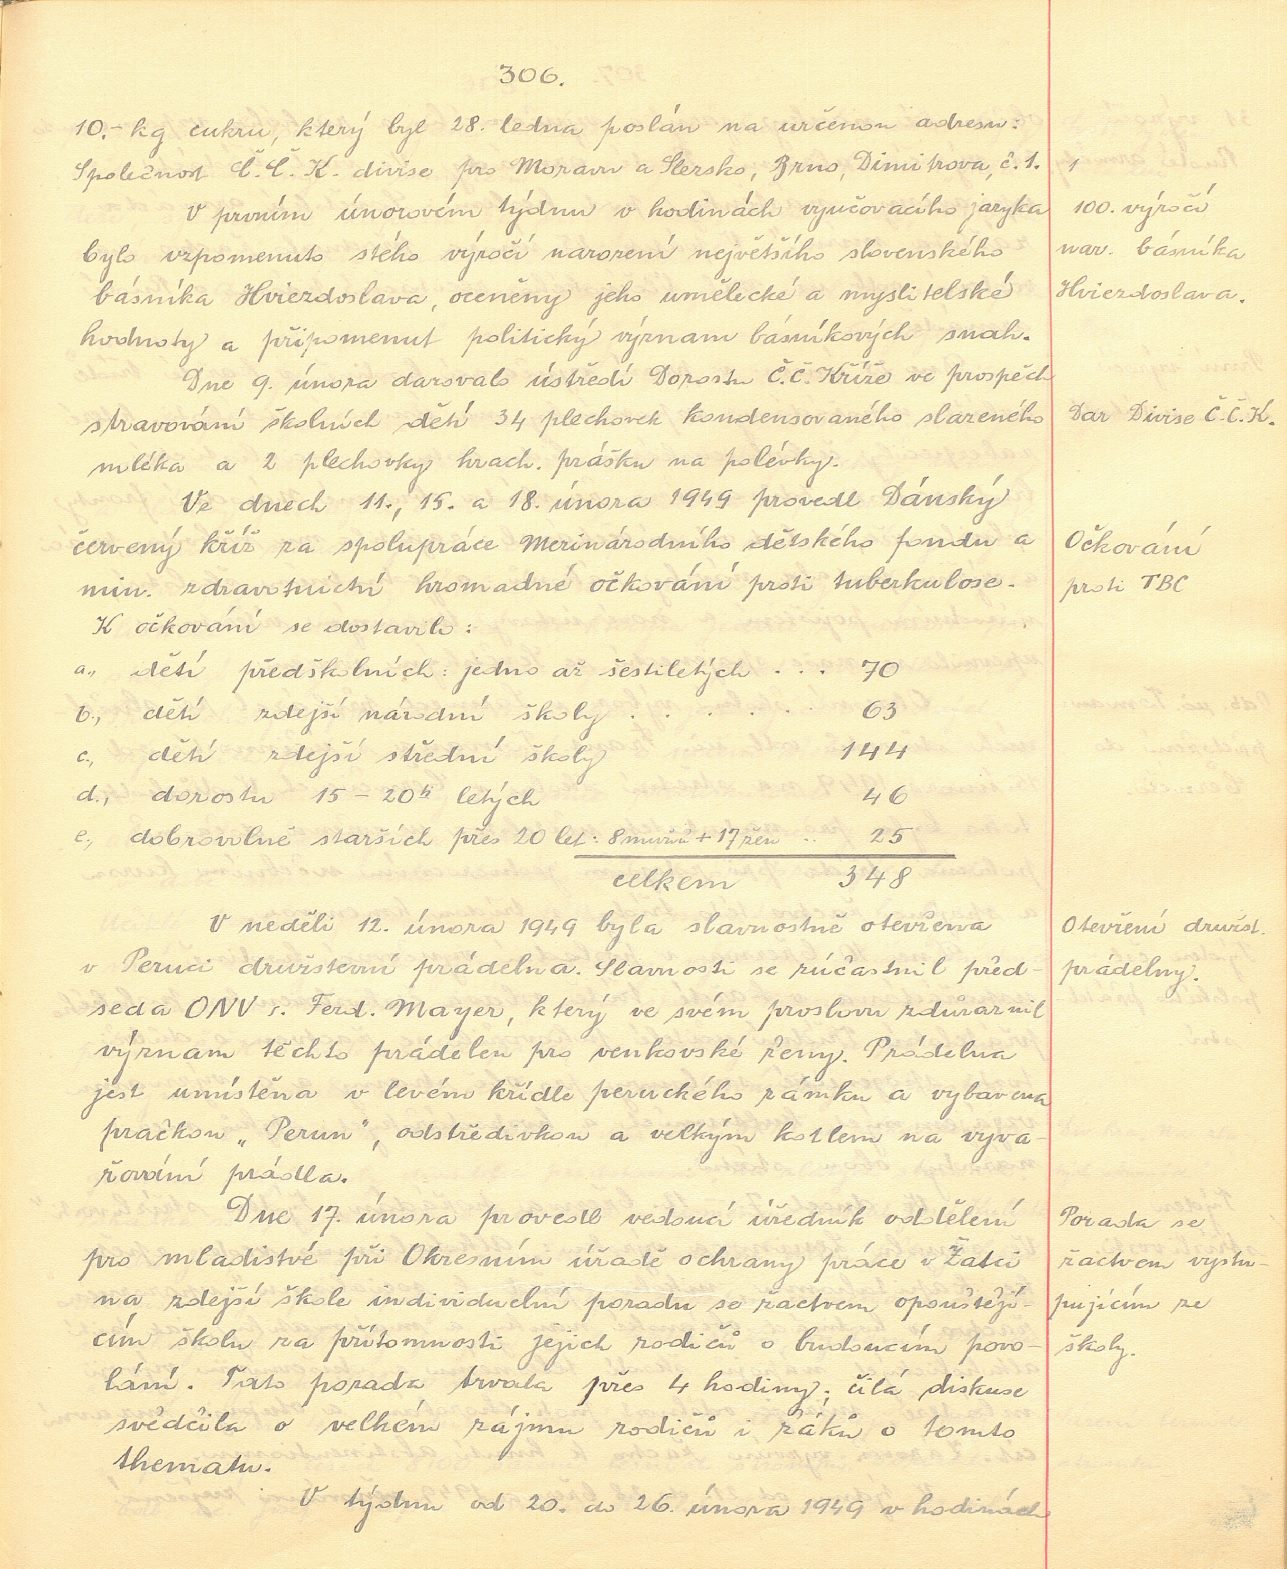 306.
10.- kg cukru, který byl 28. ledna poslán na určenou adresu:
Společnost Č.Č.K. divise pro Moravu a Slezsko, Brno, Dimitrova, č. 1.
V prvním únorovém týdnu v hodinách vyučovacího jazyka
100. výročí
bylo vzpomenuto stého výročí narození největšího slovenského
nar. básníka
básníka Hviezdoslava, oceněny jeho umělecké a myslitelské
Hviezdoslava.
hodnoty a připomenut politický význam básníkových snah.
Dne 9. února darovalo ústředí Dorostu Č.Č. Kříže ve prospěch
stravování školních dětí 34 plechovek kondensovaného slazeného
Dar Divise Č.Č.K.
mléka a 2 plechovky hrach. prášku na polévky.
Ve dnech 11., 15. a 18. února 1949 provedl Dánský
červený kříž za spolupráce Mezinárodního dětského fondu a
Očkování
min. zdravotnictví hromadné očkování proti tuberkulose.
proti TBC
K očkování se dostavilo:
a., dětí předškolních: jedno až šestiletých . . . 70
b., dětí zdejší národní školy . . . . . . 63
c., dětí zdejší střední školy 144
d., dorostu 15 - 20ti letých 46
e., dobrovolně starších přes 20 let: 8 mužů + 17 žen .. 25
celkem 348
V neděli 12. února 1949 byla slavnostně otevřena
Otevření družst.
v Peruci družstevní prádelna. Slavnosti se zúčastnil před-
prádelny.
seda ONV s. Ferd. Mayer, který ve svém proslovu zdůraznil
význam těchto prádelen pro venkovské ženy. Prádelna
jest umístěna v levém křídle peruckého zámku a vybavena
pračkou „Perun", odstředivkou a velkým kotlem na vyva-
řování prádla.
Dne 17. února provedl vedoucí úředník oddělení
Porada se
pro mladistvé při Okresním úřadě ochrany práce v Žatci
žactvem vystu-
na zdejší škole individuelní poradu se žactvem opouštějí-
pujícím ze
cím školu za přítomnosti jejich rodičů o budoucím povo-
školy.
lání. Tato porada trvala přes 4 hodiny; čilá diskuse
svědčila o velkém zájmu rodičů i žáků o tomto
thematu.
V týdnu od 20. do 26. února 1949 v hodinách